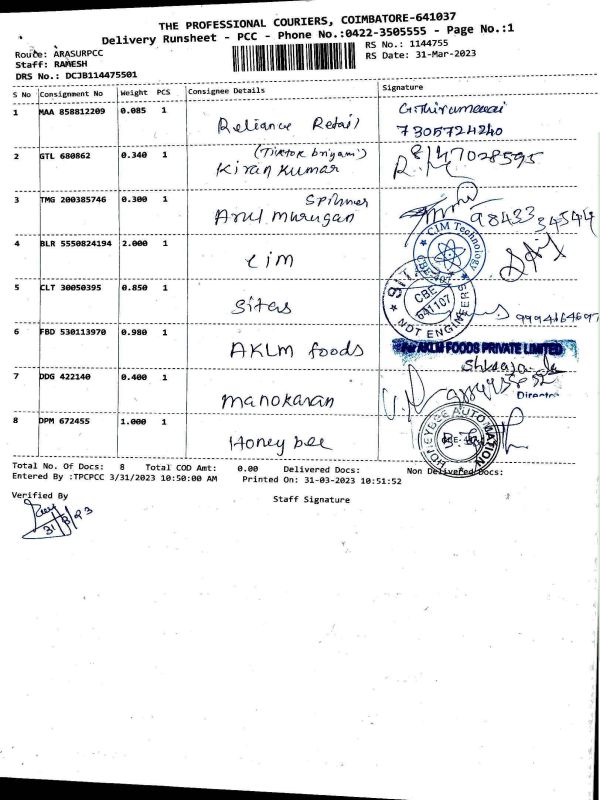 THE PROFESSIONAL COURIERS, COIMBATORE-641037
Delivery Runsheet - PCC - Phone No.:0422-3505555 - Page No.:1
Route: ARASURPCC
RS No.: 1144755
Staff: RAMESH
RS Date: 31-Mar-2023
DRS No.: DCJB114475501
S No Consignment No Weight PCS Consignee Details Signature
1 MAA 858812209 0.085 1 Reliance Retail
7305724240
2 GTL 680862 0.340 1 Kiran Kumar
3 TMG 200385746 0.300 1 Arul Murugan Spinner
98433 34544
4 BLR 5550824194 2.000 1 CIM
CIM Technology
5 CLT 30050395 0.850 1 Sitas
CBE
641107
NOT ENGINEERS
9994164697
6 FBD 530113970 0.980 1 AKLM foods
For AKLM FOODS PRIVATE LIMITED
Director
7 DDG 422140 0.400 1 Manokaran
8 DPM 672455 1.000 1 Honey bee
HONEYBEE AUTOMATION
Total No. Of Docs: 8 Total COD Amt: 0.00 Delivered Docs: Non Delivered Docs:
Entered By :TPCPCC 3/31/2023 10:50:00 AM Printed On: 31-03-2023 10:51:52
Verified By
Staff Signature
31/3/23